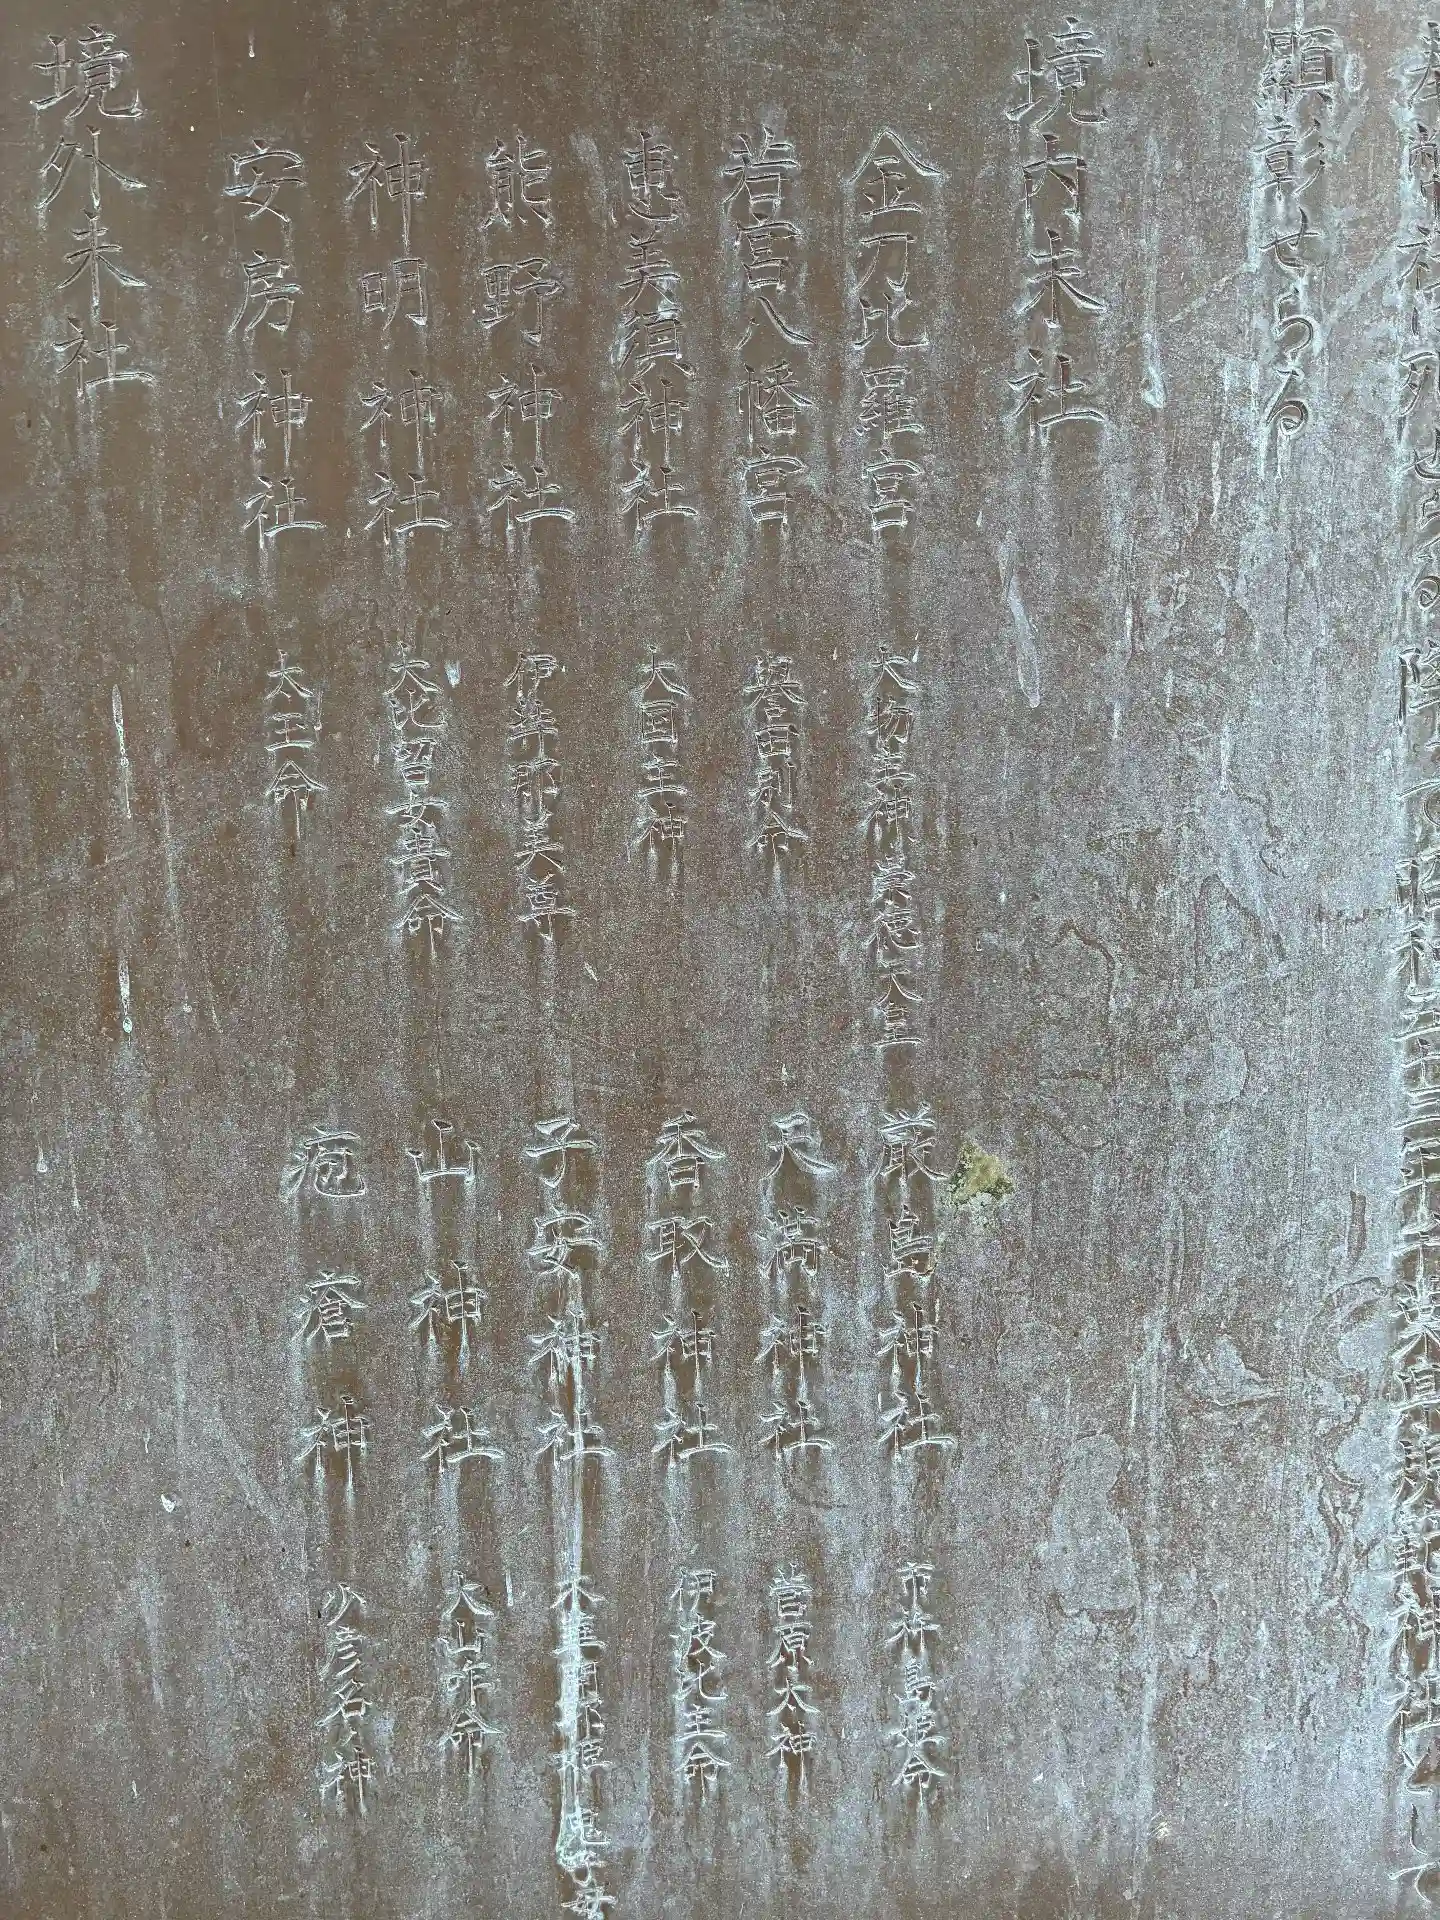 顕彰せらる
境内末社
金刀比羅宮 大物主神 崇徳天皇 厳島神社 市杵島姫命
若宮八幡宮 誉田別命 天満神社 菅原大神
恵美須神社 大国主神 香取神社 伊波比主命
熊野神社 伊弉那美尊 子安神社 木華開耶姫 鬼子母
神明神社 大比留女貴命 山神社 大山咋命
安房神社 太玉命 疱瘡神 少彦名神
境外末社